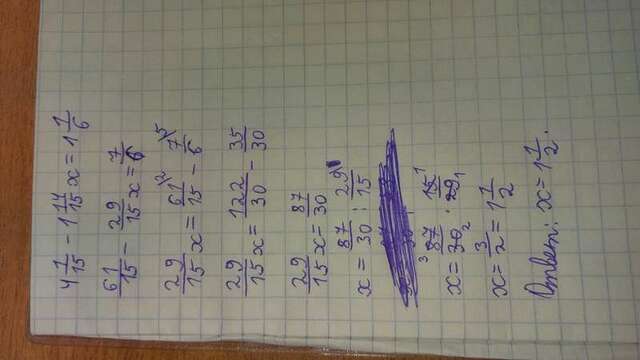 4 1/15 - 1 14/15 x = 1 1/6
61/15 - 29/15 x = 7/6
29/15 x = 61/15 ² - 7/6 ⁵
29/15 x = 122/30 - 35/30
29/15 x = 87/30
x = 87/30 : 29/15
x = ³ 87/30 ₂ · 15 ¹/29 ₁
x = 3/2 = 1 1/2
Ответ: x = 1 1/2.